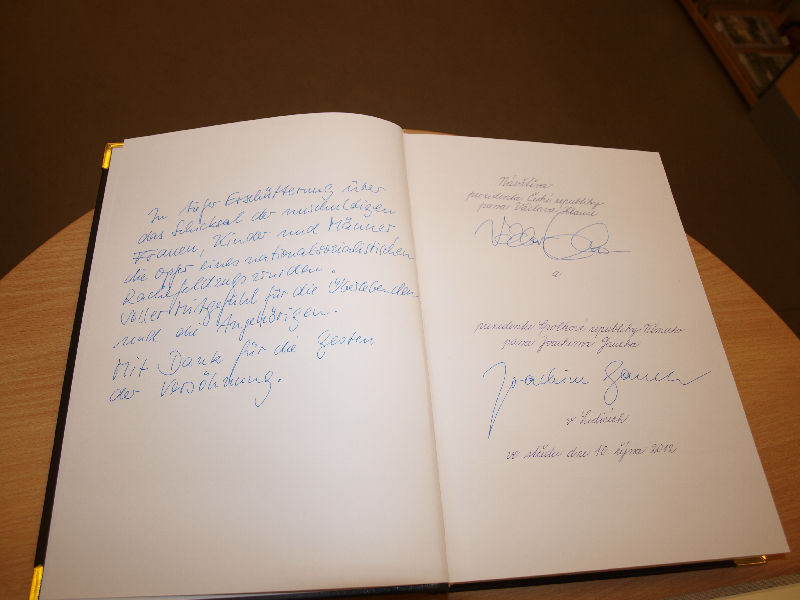 In tiefer Erschütterung über
das Schicksal der unschuldigen
Frauen, Kinder und Männer
die Opfer eines nationalsozialistischen
Rachefeldzugs wurden.
Voller Mitgefühl für die Überlebenden
und die Angehörigen.
Mit Dank für die Gesten
der Versöhnung.
Návštěva
prezidenta České republiky
pana Václava Klause
a
prezidenta Spolkové republiky Německo
pana Joachima Gaucka
Joachim Gauck
v Lidicích
ve středu dne 10. října 2012